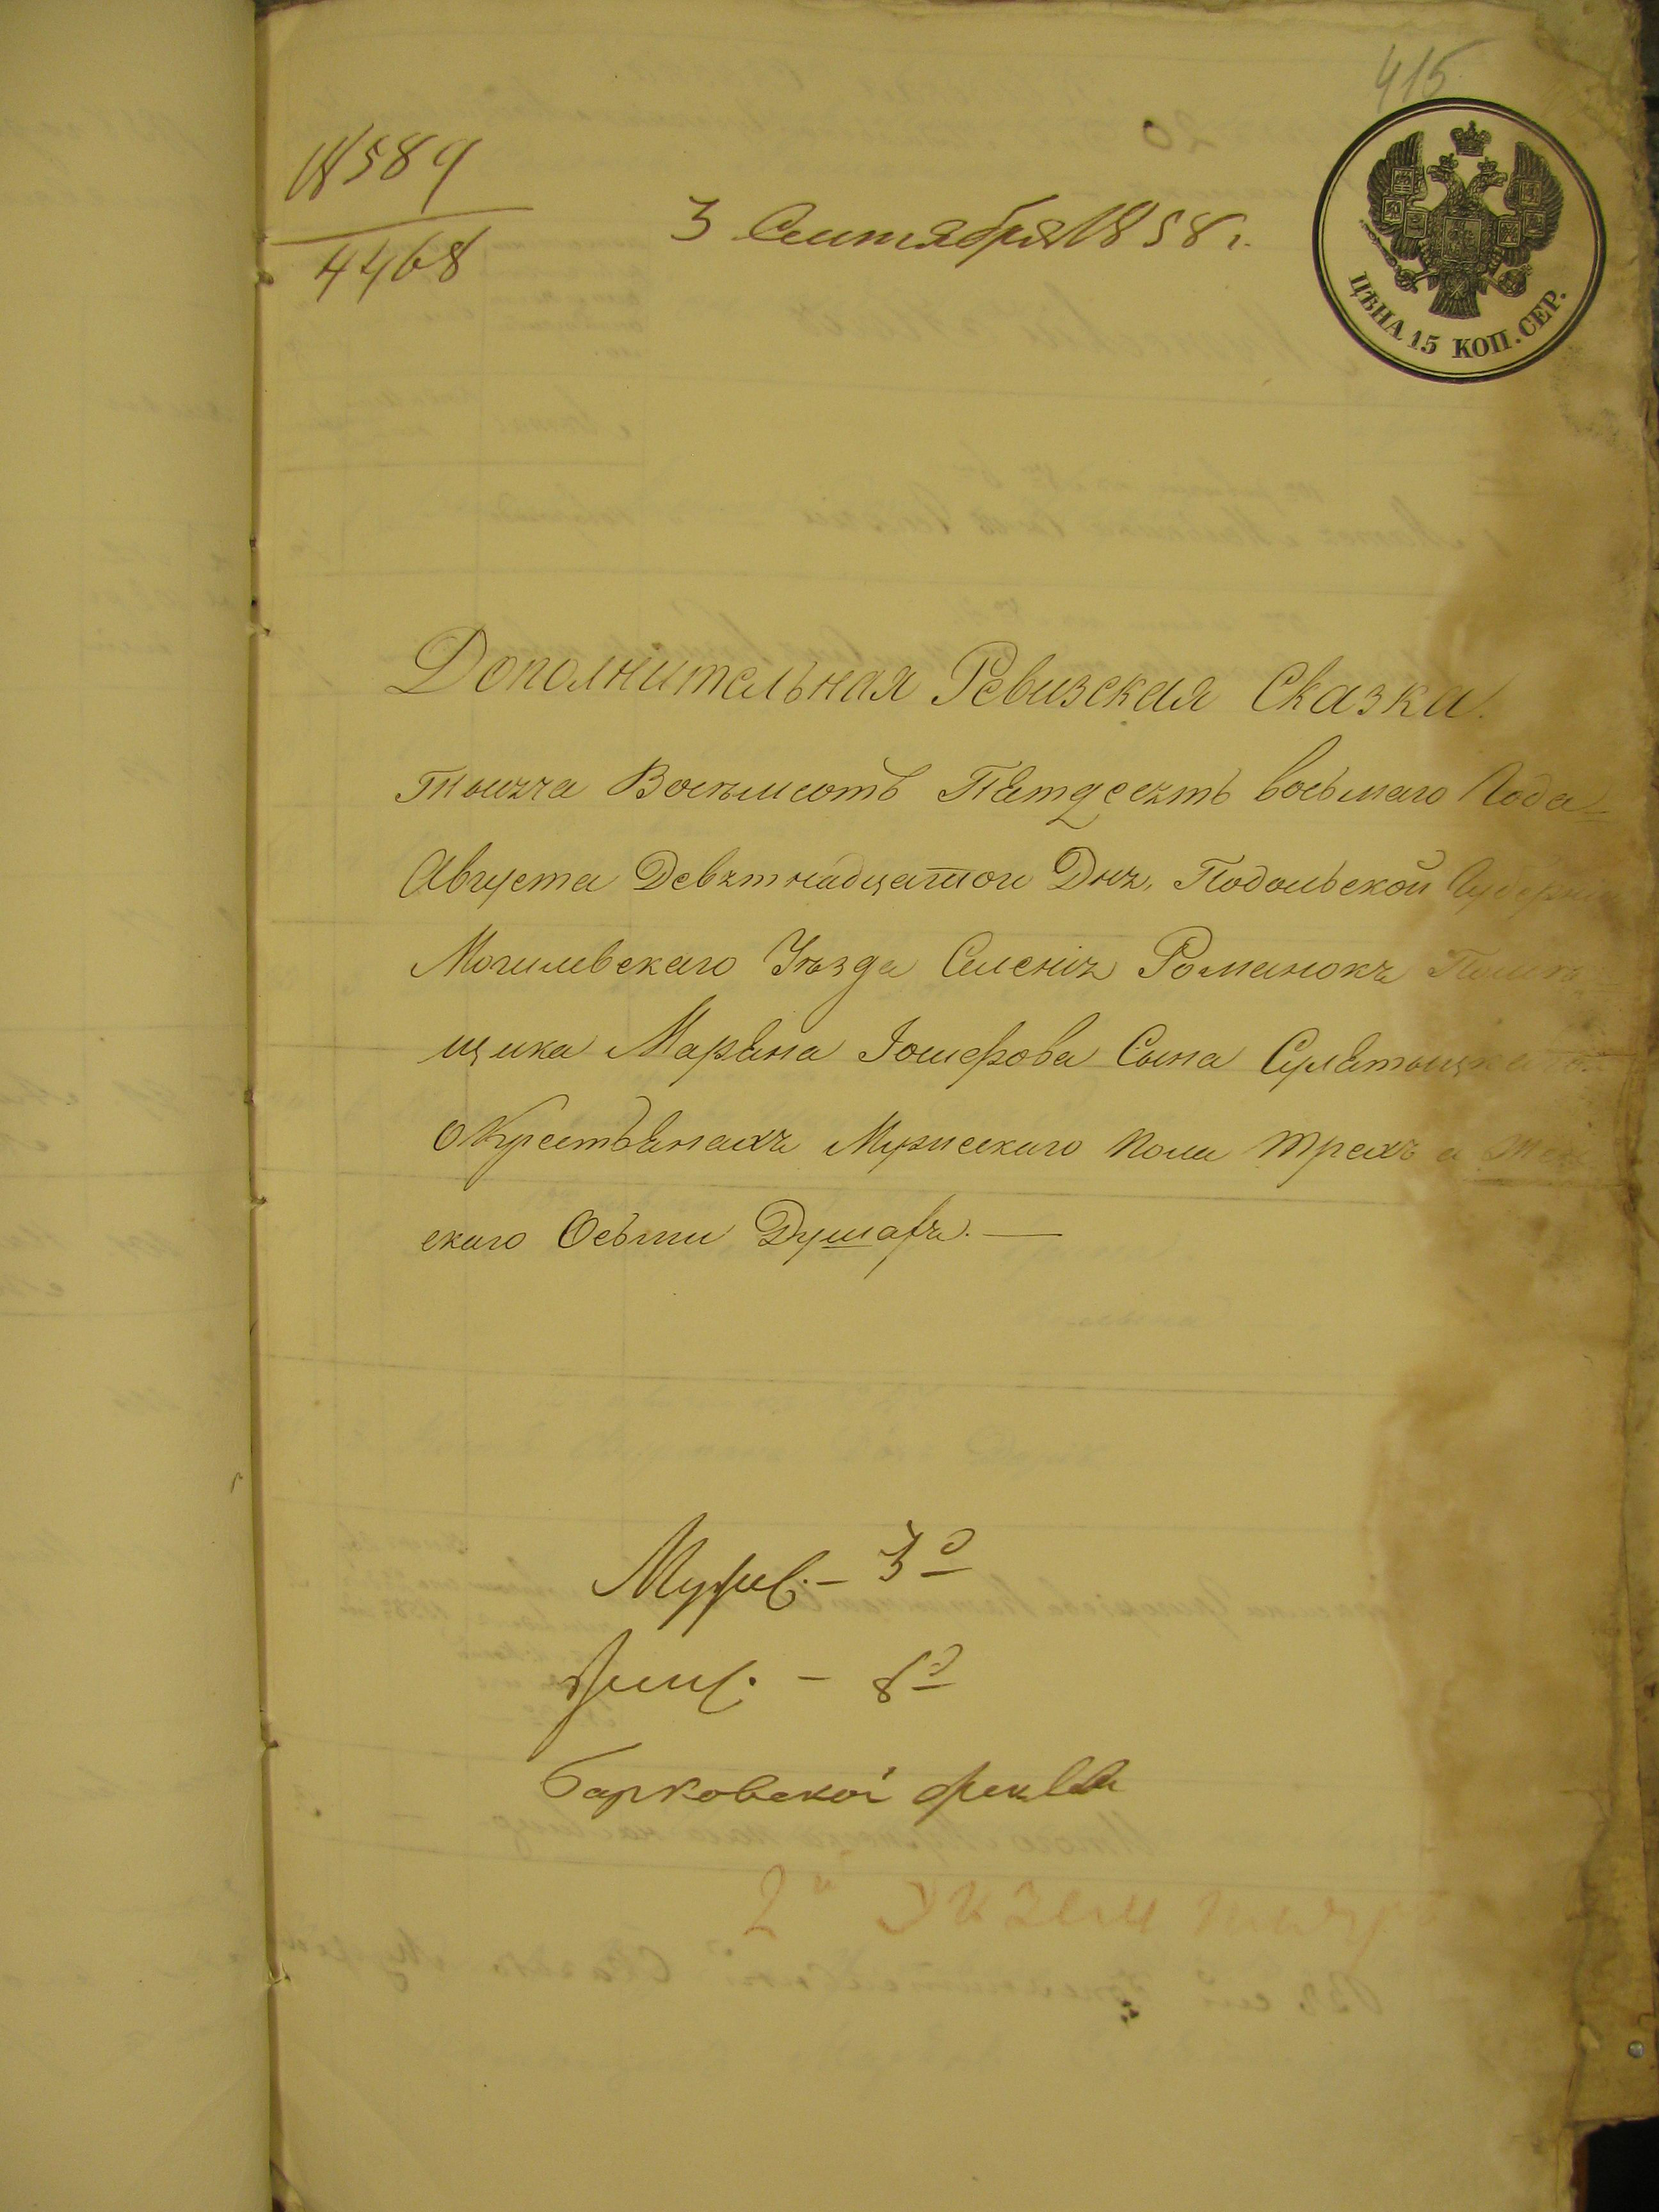 415
№ 589
4468
3 Сентября 1858 г.
ЦѢНА 15 КОП. СЕР.
Дополнительная Ревизская Сказка.
тысяча Восемьсотъ Пятдесятъ восьмаго Года
Августа Девятнадцатого Дня, Подольской Губерніи
Могилевскаго Уѣзда Селенія Романокъ Помѣ-
щика Маріяна Іосифова Сына Сулятыцкаго
О Крестьянахъ Мужескаго пола трехъ а жен
скаго Осьми Душахъ. —
Муж. – 3
Жен. – 8
Барковской
2й